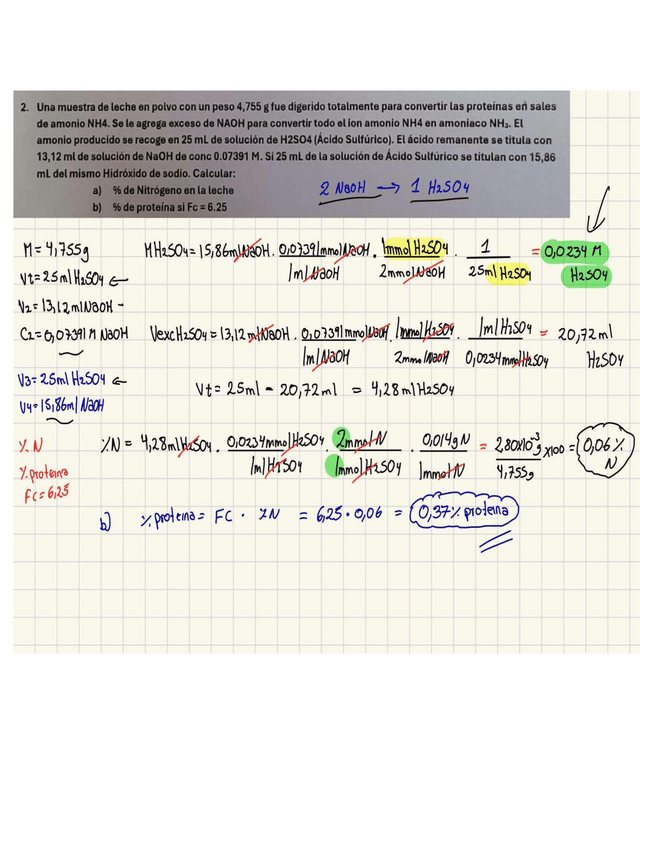 2. Una muestra de leche en polvo con un peso 4,755 g fue digerido totalmente para convertir las proteínas en sales
de amonio NH4. Se le agrega exceso de NAOH para convertir todo el ion amonio NH4 en amoniaco NH₃. El
amonio producido se recoge en 25 mL de solución de H2SO4 (Ácido Sulfúrico). El ácido remanente se titula con
13,12 ml de solución de NaOH de conc 0.07391 M. Si 25 mL de la solución de Ácido Sulfúrico se titulan con 15,86
mL del mismo Hidróxido de sodio. Calcular:
a) % de Nitrógeno en la leche
b) % de proteína si Fc = 6.25
2 NaOH → 1 H2SO4
M = 4,755g
Vt = 25ml H2SO4 ←
V2 = 13,12 ml NaOH -
C2 = 0,07391 M NaOH
V3 = 25ml H2SO4 ←
V4 = 15,86ml NaOH
% N
% proteina
FC = 6,25
M H2SO4 = 15,86ml NaOH . 0,07391 mmol NaOH . 1mmol H2SO4 . 1 = 0,0234 M
1ml NaOH 2mmol NaOH 25ml H2SO4 H2SO4
Vexc H2SO4 = 13,12 ml NaOH . 0,07391 mmol NaOH . 1mmol H2SO4 . 1ml H2SO4 = 20,72 ml
1ml NaOH 2mmol NaOH 0,0234 mmol H2SO4 H2SO4
Vt = 25ml - 20,72 ml = 4,28 ml H2SO4
% N = 4,28 ml H2SO4 . 0,0234 mmol H2SO4 . 2mmol N . 0,014g N = 2,80x10⁻³g x100 = 0,06 %
1ml H2SO4 1mmol H2SO4 1mmol N 4,755g N
b) % proteina = FC . % N = 6,25 . 0,06 = 0,37 % proteina